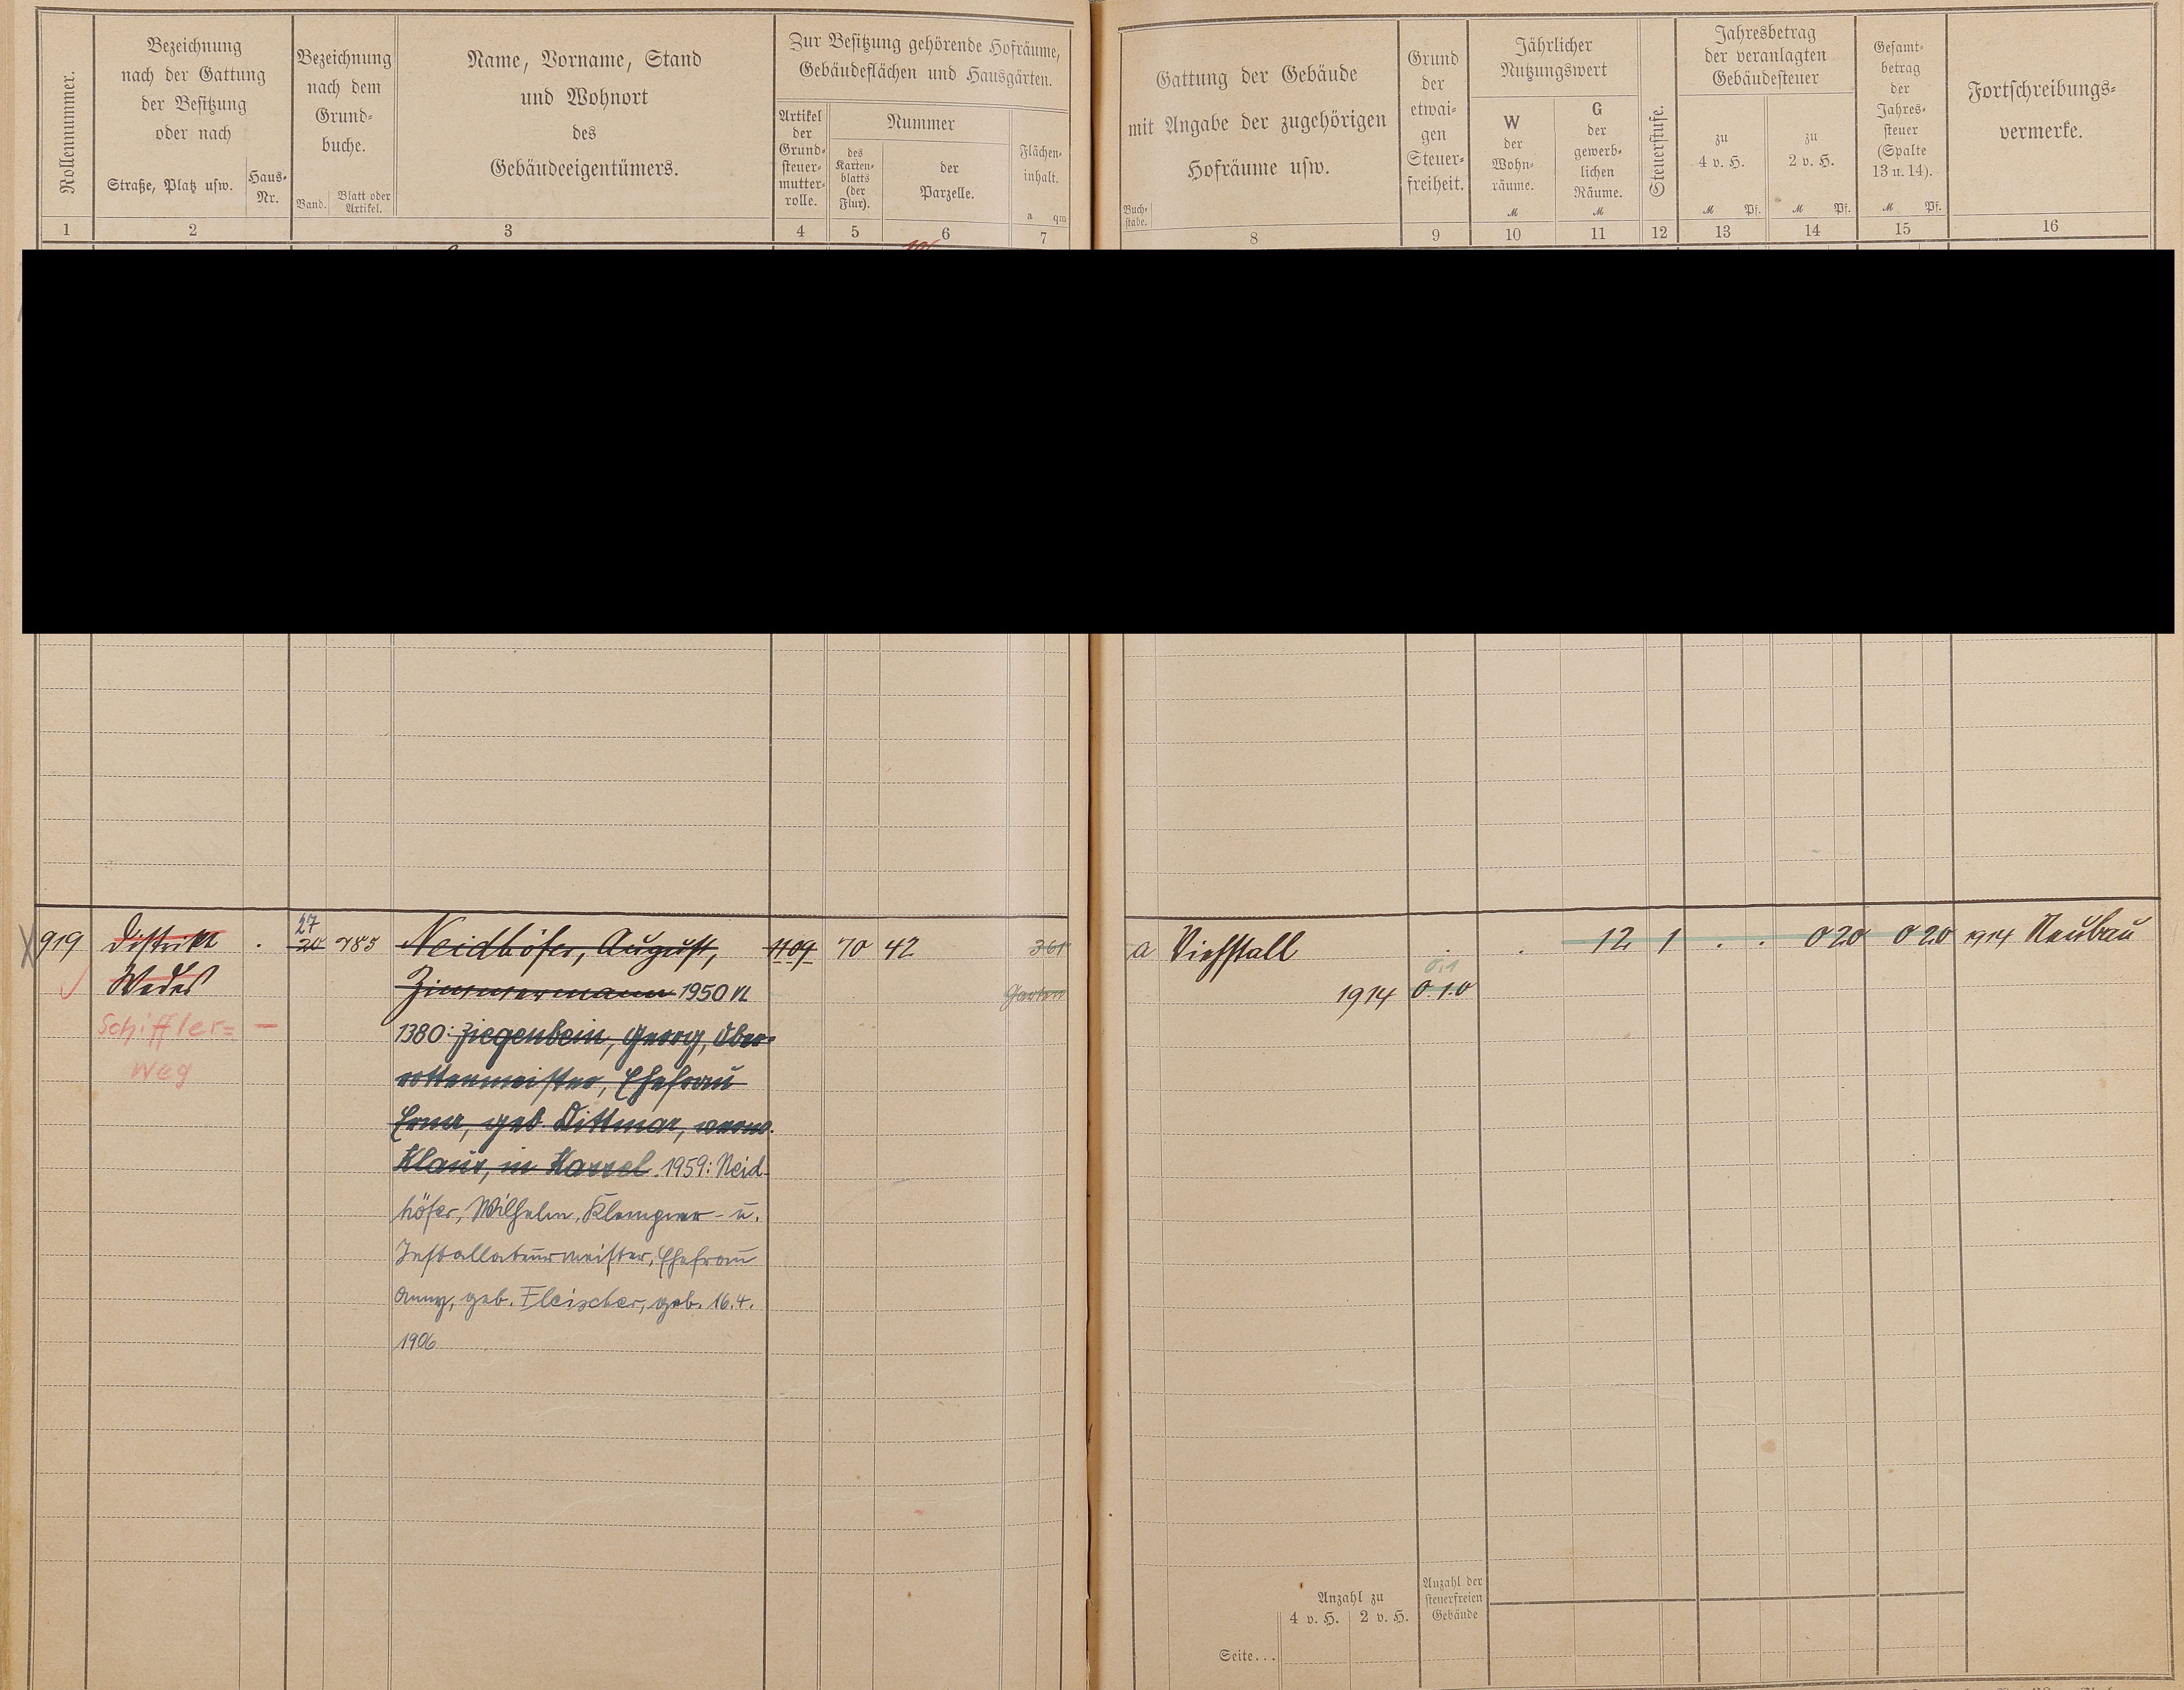 Rollennummer.
Bezeichnung
nach der Gattung
der Besitzung
oder nach
Straße, Platz usw.
Haus-
Nr.
Bezeichnung
nach dem
Grund-
buche.
Band.
Blatt oder
Artikel.
Name, Vorname, Stand
und Wohnort
des
Gebäudeeigentümers.
Zur Besitzung gehörende Hofräume,
Gebäudeflächen und Hausgärten.
Artikel
der
Grund-
steuer-
mutter-
rolle.
Nummer
des
Karten-
blatts
(der
Flur).
der
Parzelle.
Flächen-
inhalt.
a qm
1 2 3 4 5 6 7
Buch-
stabe.
Gattung der Gebäude
mit Angabe der zugehörigen
Hofräume usw.
Grund
der
etwai-
gen
Steuer-
freiheit.
Jährlicher
Nutzungswert
W
der
Wohn-
räume.
M
G
der
gewerb-
lichen
Räume.
M
Steuerstufe.
Jahresbetrag
der veranlagten
Gebäudesteuer
zu
4 v. H.
M Pf.
zu
2 v. H.
M Pf.
Gesamt-
betrag
der
Jahres-
steuer
(Spalte
13 u. 14).
M Pf.
Fortschreibungs-
vermerke.
8 9 10 11 12 13 14 15 16
27
919 Distrikt . 20 785 Neidhöfer, August, 1109 70 42 361
Zimmermann 1950 N
Garten
Schiffler= —
weg
1380: Ziegenbein, Georg, Ober-
rottenmeister, Ehefrau
Erna, geb. Dittmar, verw.
Klaus, in Kassel. 1959: Neid-
höfer, Wilhelm, Klempner- u.
Installateurmeister, Ehefrau
Anny, geb. Fleischer, geb. 16.4.
1906
a Viehstall . . 12 1 . . 0 20 0 20 1914 Neubau
0.1
1914 0.1.0
Anzahl zu
4 v. H. 2 v. H.
Anzahl der
steuerfreien
Gebäude
Seite...